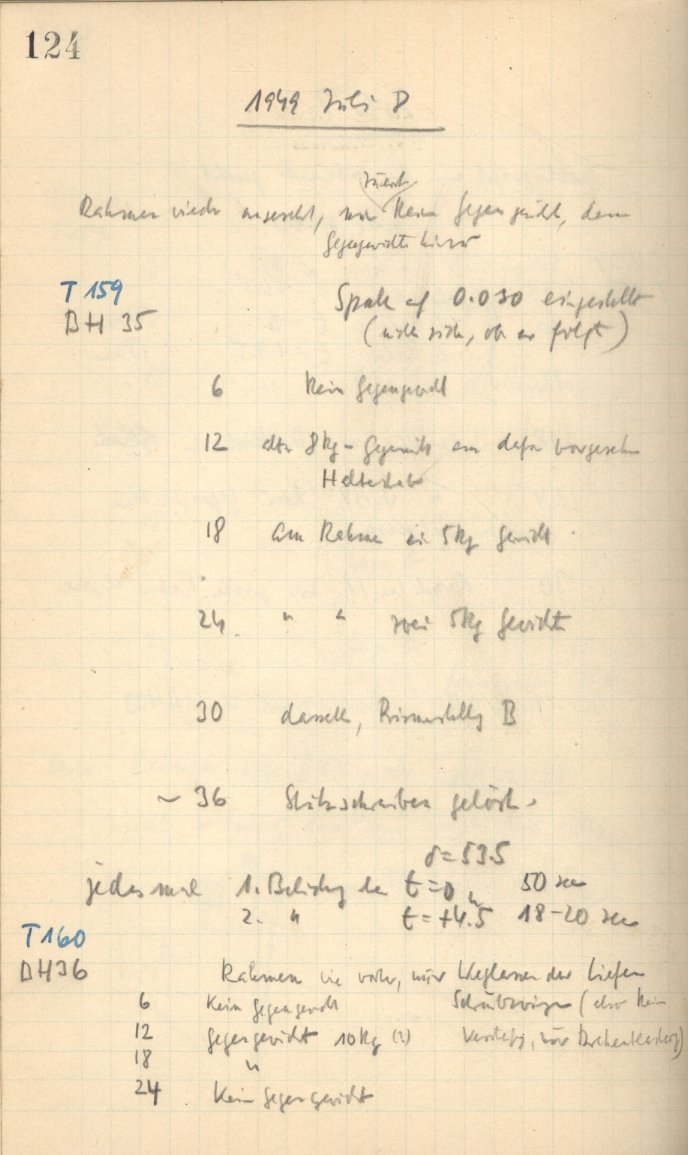 124
1949 Juli 8
zuerst
Rahmen wieder angesetzt, nur kein Gegengewicht, dann
Gegengewichte hinzu
T 159
Spalt auf 0.030 eingestellt
BH 35
(nicht sicher, ob er folgt)
6 kein Gegengewicht
12 altes 8kg-Gegengewicht am dafür vorgesehenen
Haltestabe
18 Am Rahmen ein 5kg Gewicht
24 " " zwei 5kg Gewichte
30 dasselbe, Prismenstellg B
~ 36 Stützschrauben gelöst.
δ=53.5
jedesmal 1. Belichtg bei t=0 50 sec
2. " t=+4.5 18-20 sec
T160
BH36 Rahmen wie vorher, nur Weglassen der tiefen
6 Kein Gegengewicht (also kein
12 Gegengewicht 10kg (2) nur
18 "
24 Kein Gegengewicht